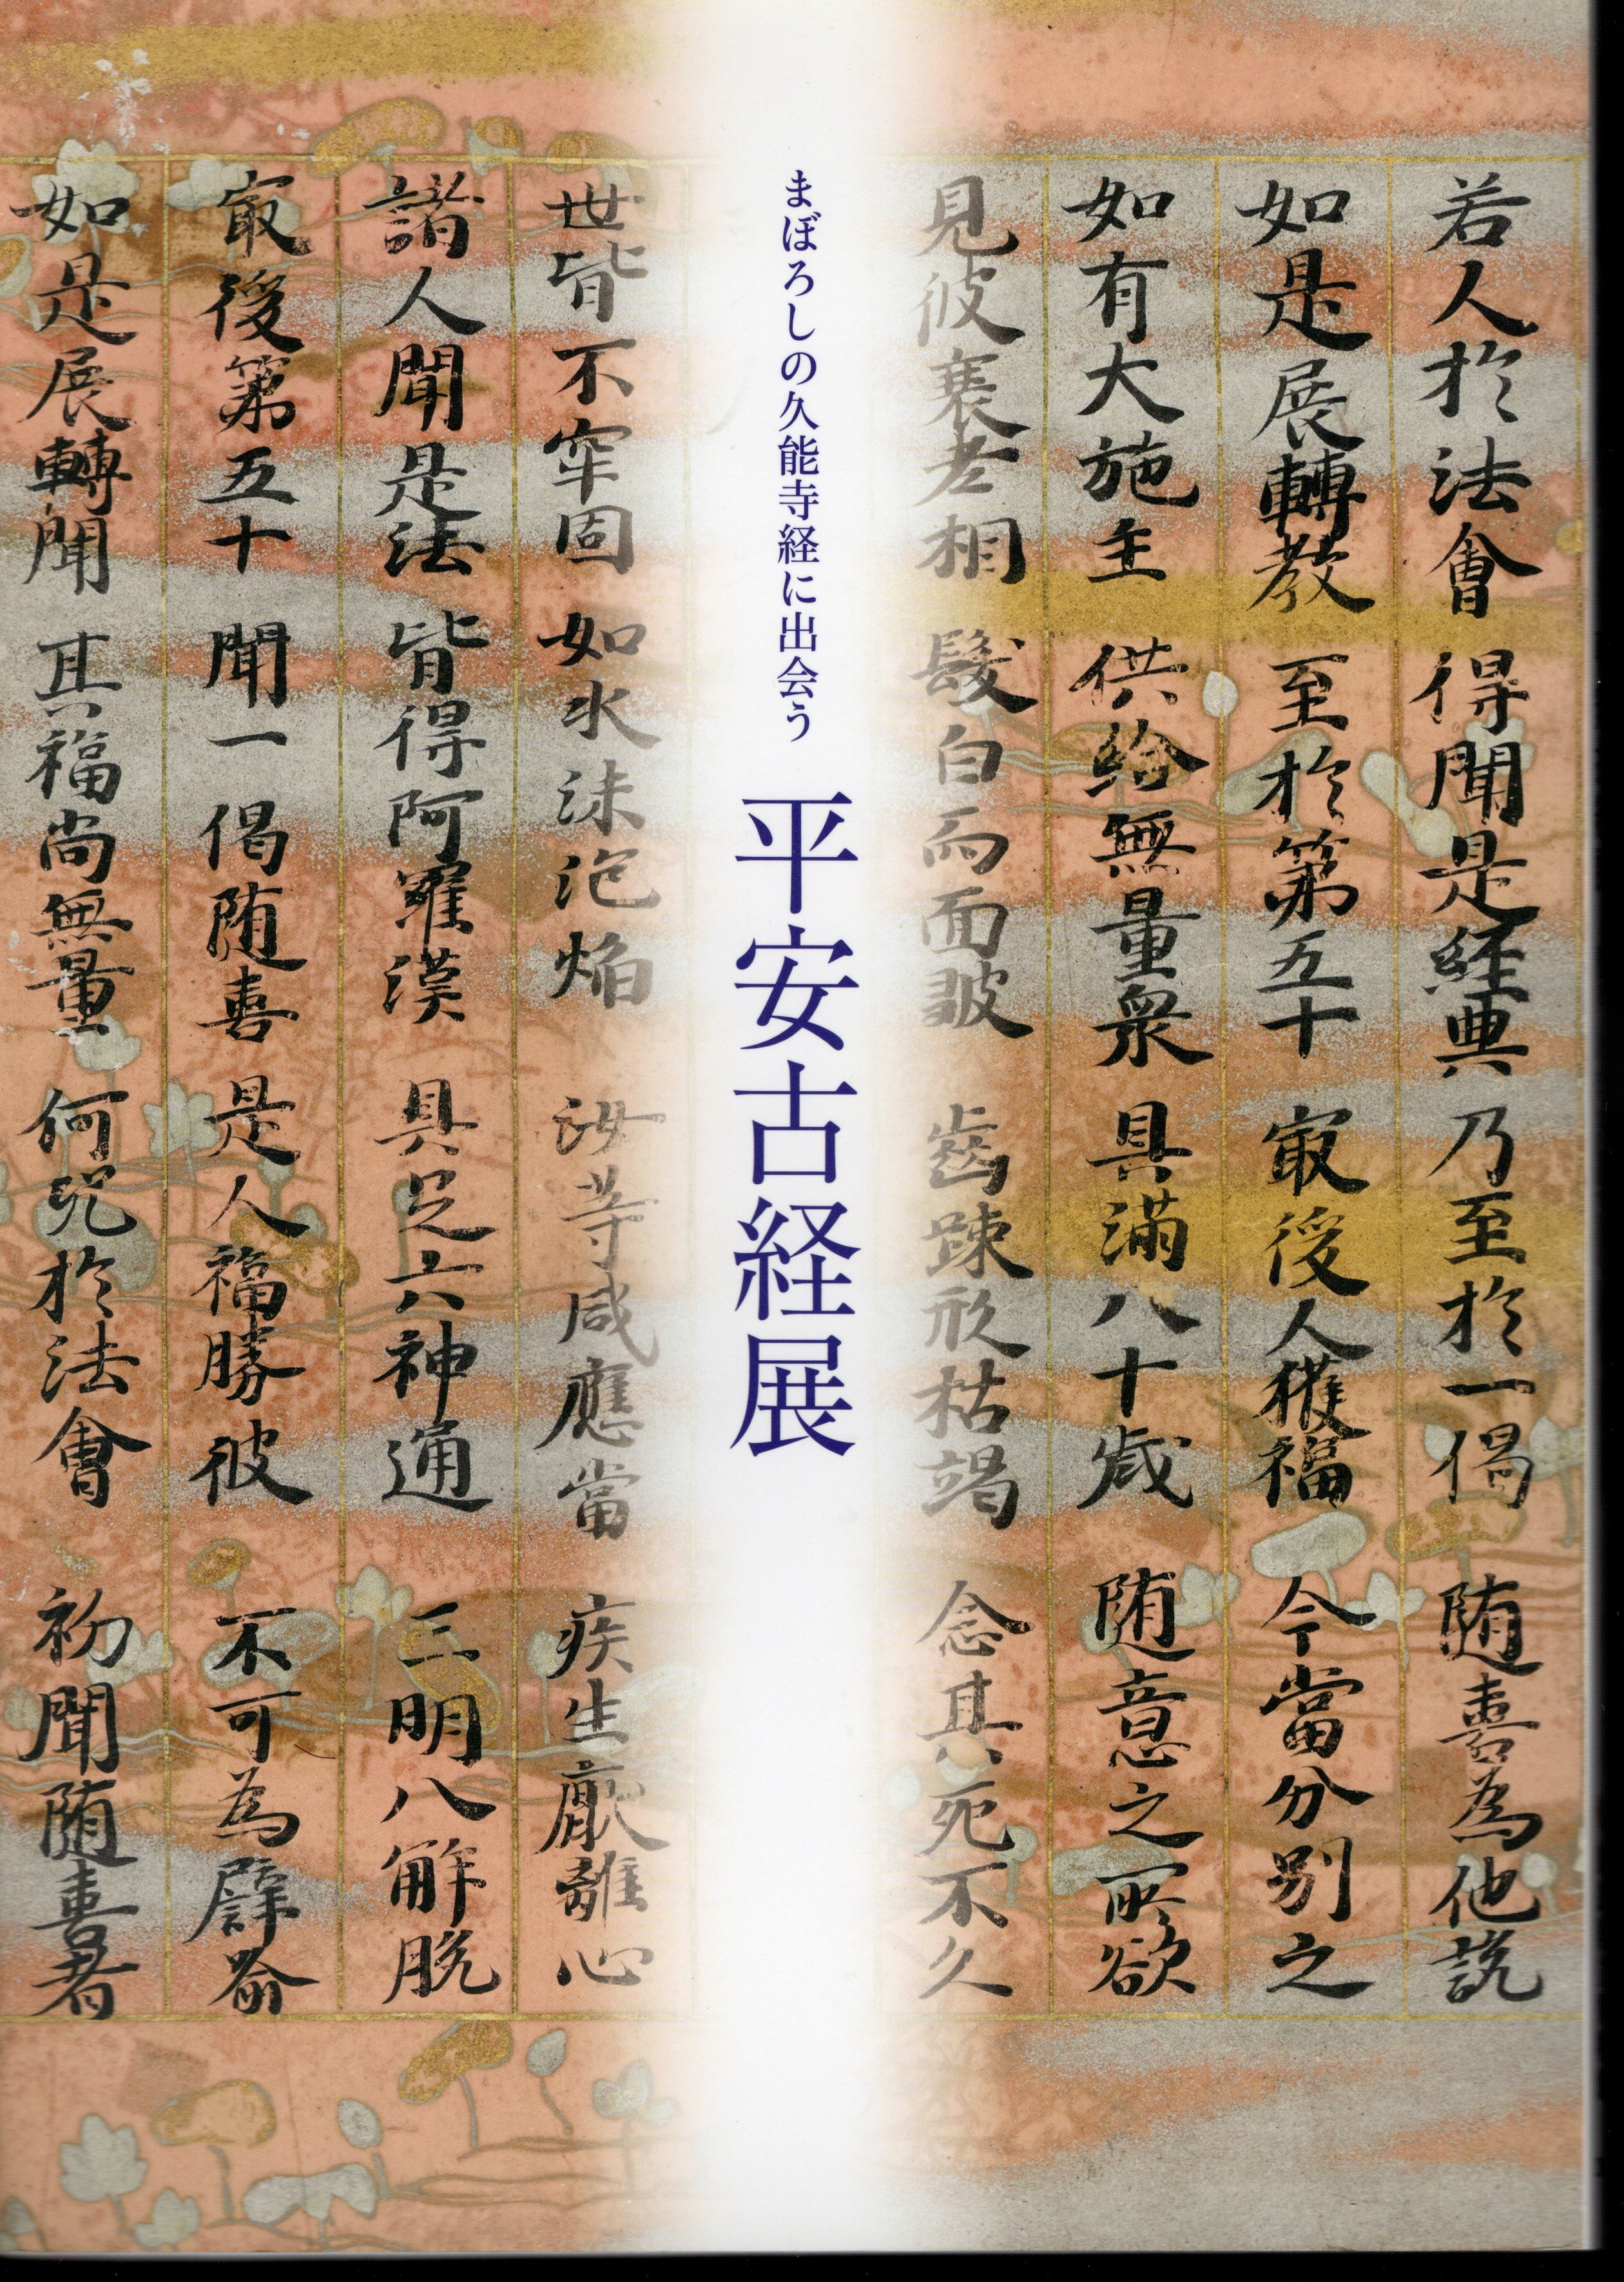 若人於法會 得聞是経典 乃至於一偈 随喜為他説
如是展轉教 至於第五十 㝡後人獲福 今當分別之
如有大施主 供給無量衆 具滿八十歳 随意之所欲
見彼衰老相 髮白而面皺 齒踈形枯竭 念其死不久
まぼろしの久能寺経に出会う
平安古経展
世皆不牢固 如水沫泡焔 汝等咸應當 疾生厭離心
諸人聞是法 皆得阿羅漢 具足六神通 三明八解脱
㝡後第五十 聞一偈随喜 是人福勝彼 不可為譬喻
如是展轉聞 其福尚無量 何況於法會 初聞随喜者